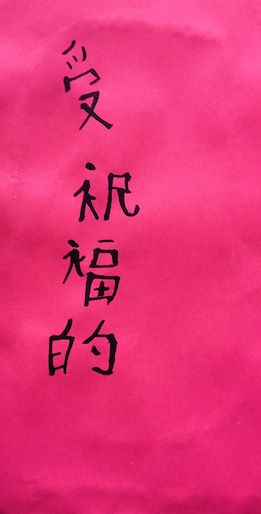 受祝福的